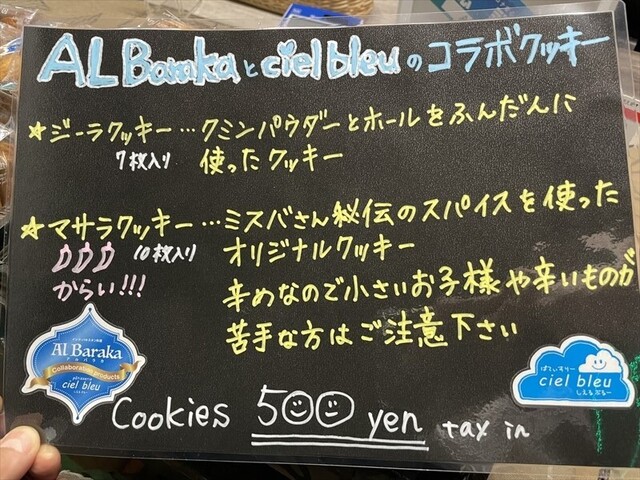 AL Barakaとciel bleuのコラボクッキー
★ジーラクッキー…クミンパウダーとホールをふんだんに
7枚入り 使ったクッキー
★マサラクッキー…ミスバさん秘伝のスパイスを使った
10枚入り オリジナルクッキー
からい!!!
辛めなので小さいお子様や辛いものが
苦手な方はご注意下さい
Al Baraka
アルバラカ
Collaboration products
ciel bleu
しえるぶるー
ぱてぃすりー
ciel bleu
しえるぶるー
Cookies 500 yen tax in